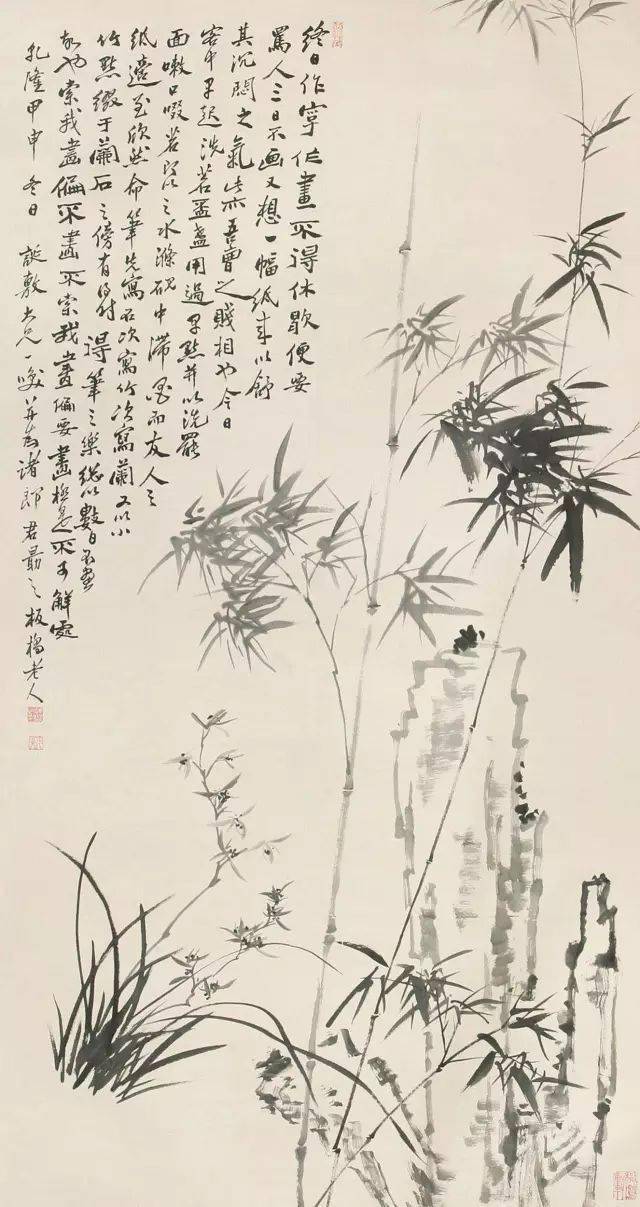 終日作字作畫不得休歇便要
罵人三日不画又想一幅紙來以舒
其沉悶之氣此亦吾曹之賤相也今日
客中早起洗盃盞用過早點并以洗罷
面嗽口啜茗以之水滌硯中滯墨而友人之
紙適至欣然命筆先寫石次寫竹次寫蘭又以小
竹點綴于蘭石之傍有得筆之樂總以數日不畫
故也索我畫偏不畫不索我畫偏要畫極是不可解處
乾隆甲申冬日 誕敷大兄一咲并為諸郎君勗之 板橋老人